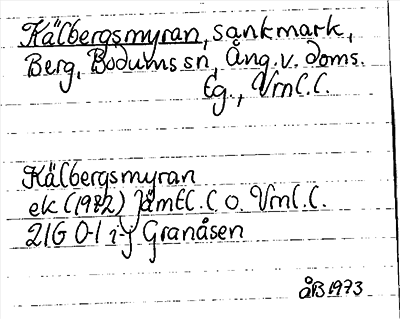 Kälbergsmyran, sankmark,
Berg, Bodums sn, Ång. v. doms.
Eg., Vrnl.C.
Kälbergsmyran
ek (1972) Jämtl.C. o. Vrnl.C.
21G 0-1 i-j Granåsen
ÅB 1973